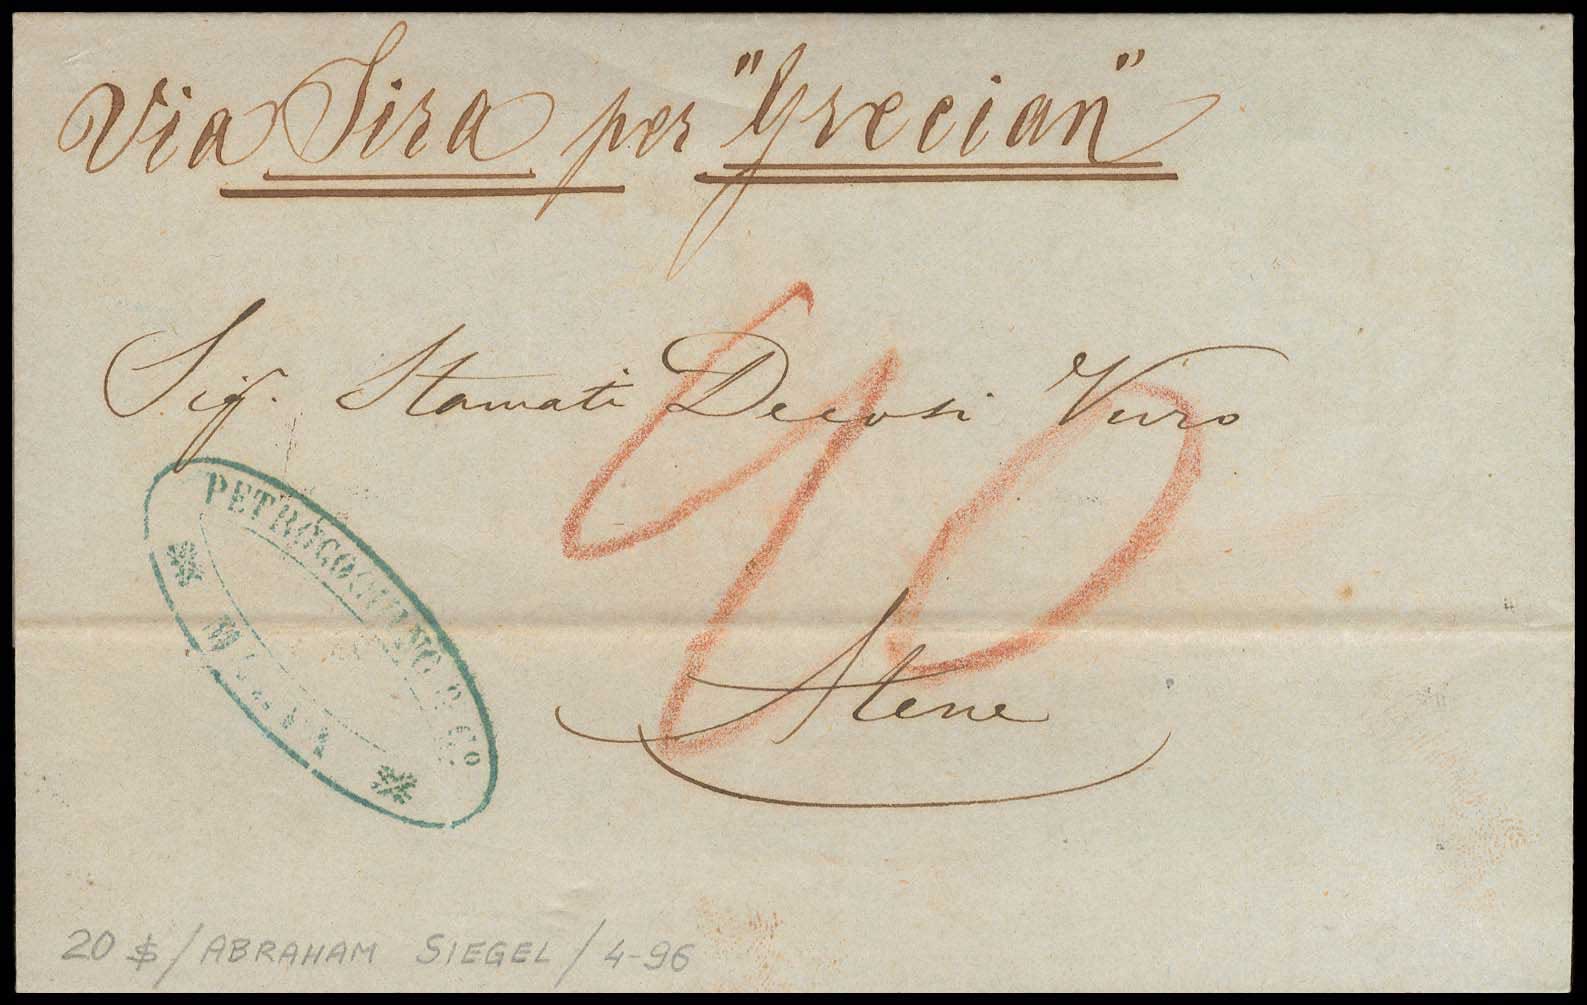 Via Sira per "Grecian"
Sig. Stamati Decosi Vuro
90
Atene
PETROCOCHINO & Co.
MALTA
20 $ / ABRAHAM SIEGEL / 4-96